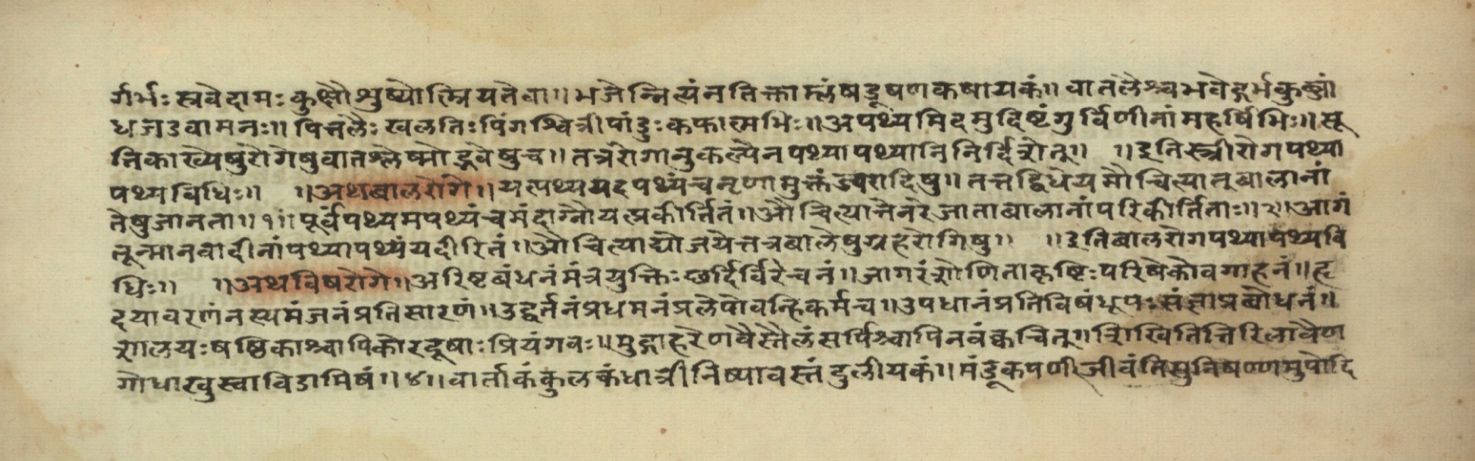 र्गर्भः स्रवेदामः कुक्षौ शुष्योत्म्रियते वा॥ भजेन्नित्यं न तिक्ताम्लं षडूषणकषायकं॥ वातलैश्च भवेद्गर्भकुब्जां
धजडवामनः॥ पित्तलैः खलतिः पिंगश्वित्री पांडुः कफात्मभिः॥ अपथ्यमिदमुद्दिष्टं गुर्विणीनां महर्षिभिः॥ सू
तिकाख्येषु रोगेषु वातश्लेष्मोद्भवेषु च॥ तत्ररोगानुकल्पेन पथ्यापथ्यानि निर्दिशेत्॥ ॥ इति स्त्रीरोगपथ्या
पथ्यविधिः॥ ॥ अथ बालरोगे॥ यत्पथ्यं यदपथ्यं च नृणामुक्तं ज्वरादिषु॥ तत्तद्विधेयमौचित्यात् बालानां
तेषु जानता॥ १॥ पूर्वं पथ्यमपथ्यं च मंदाग्नौ यत्प्रकीर्तितं॥ औचित्यात्तेनरे जाता बालानां परिकीर्तिताः॥ २॥ आगं
तून्मानवादीनां पथ्यापथ्यं यदीरितं॥ औचित्याद्योजयेत्तत्र बालेषु ग्रहरोगिषु॥ ॥ इति बालरोगपथ्यापथ्यवि
धिः॥ ॥ अथ विषरोगे॥ अरिष्टबंधनं मंत्रयुक्तिः छर्दिर्विरेचनं॥ जागरं शोणिताकृष्टिः परिषेकोवगाहनं॥ हृ
दयावरणं नस्यमंजनं प्रतिसारणं॥ उद्वर्तनं प्रधमनं प्रलेपो वन्हिकर्म च॥ उपधानं प्रतिविषं धूपः संज्ञाप्रबोधनं॥
शालयः षष्टिकाश्चापि कोरदूषाः प्रियंगवः॥ मुद्गा हरेणवैस्तैलं सर्पिश्चापि नवं क्वचित्॥ शिखितित्तिरिलावैण
गोधाखुस्वाविडामिषं॥ ४॥ वार्ताकं कुलकं धात्री निष्पावस्तंदुलीयकं॥ मंडूकपर्णी जीवंति सुनिषण्णमुपोदि